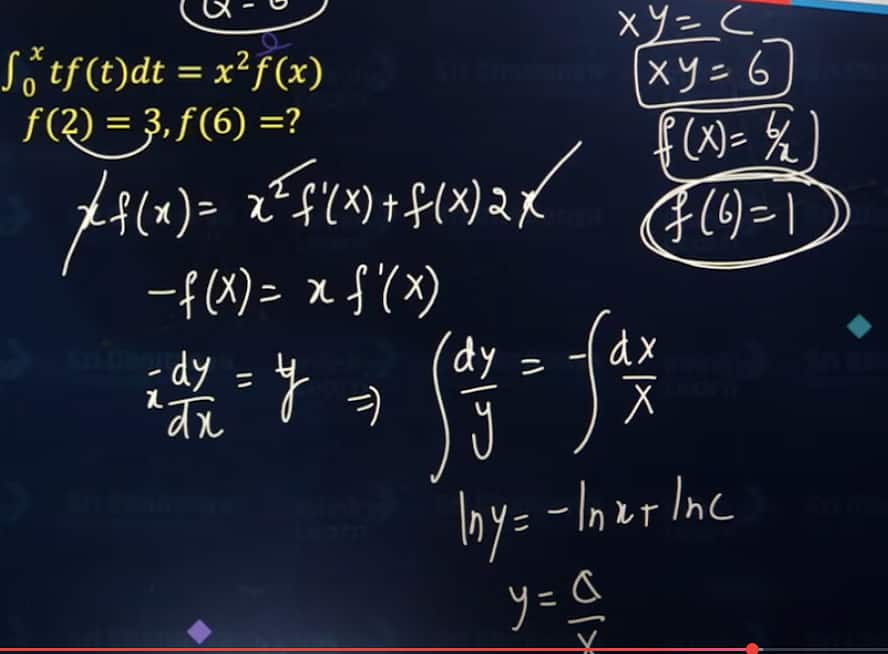 ∫₀ˣ tf(t)dt = x²f(x)
f(2) = 3, f(6) =?
xf(x) = x²f'(x) + f(x)2x
-f(x) = x f'(x)
-x dy/dx = y ⇒ ∫ dy/y = -∫ dx/x
ln y = -ln x + ln c
y = c/x
xy = c
xy = 6
f(x) = 6/x
f(6) = 1